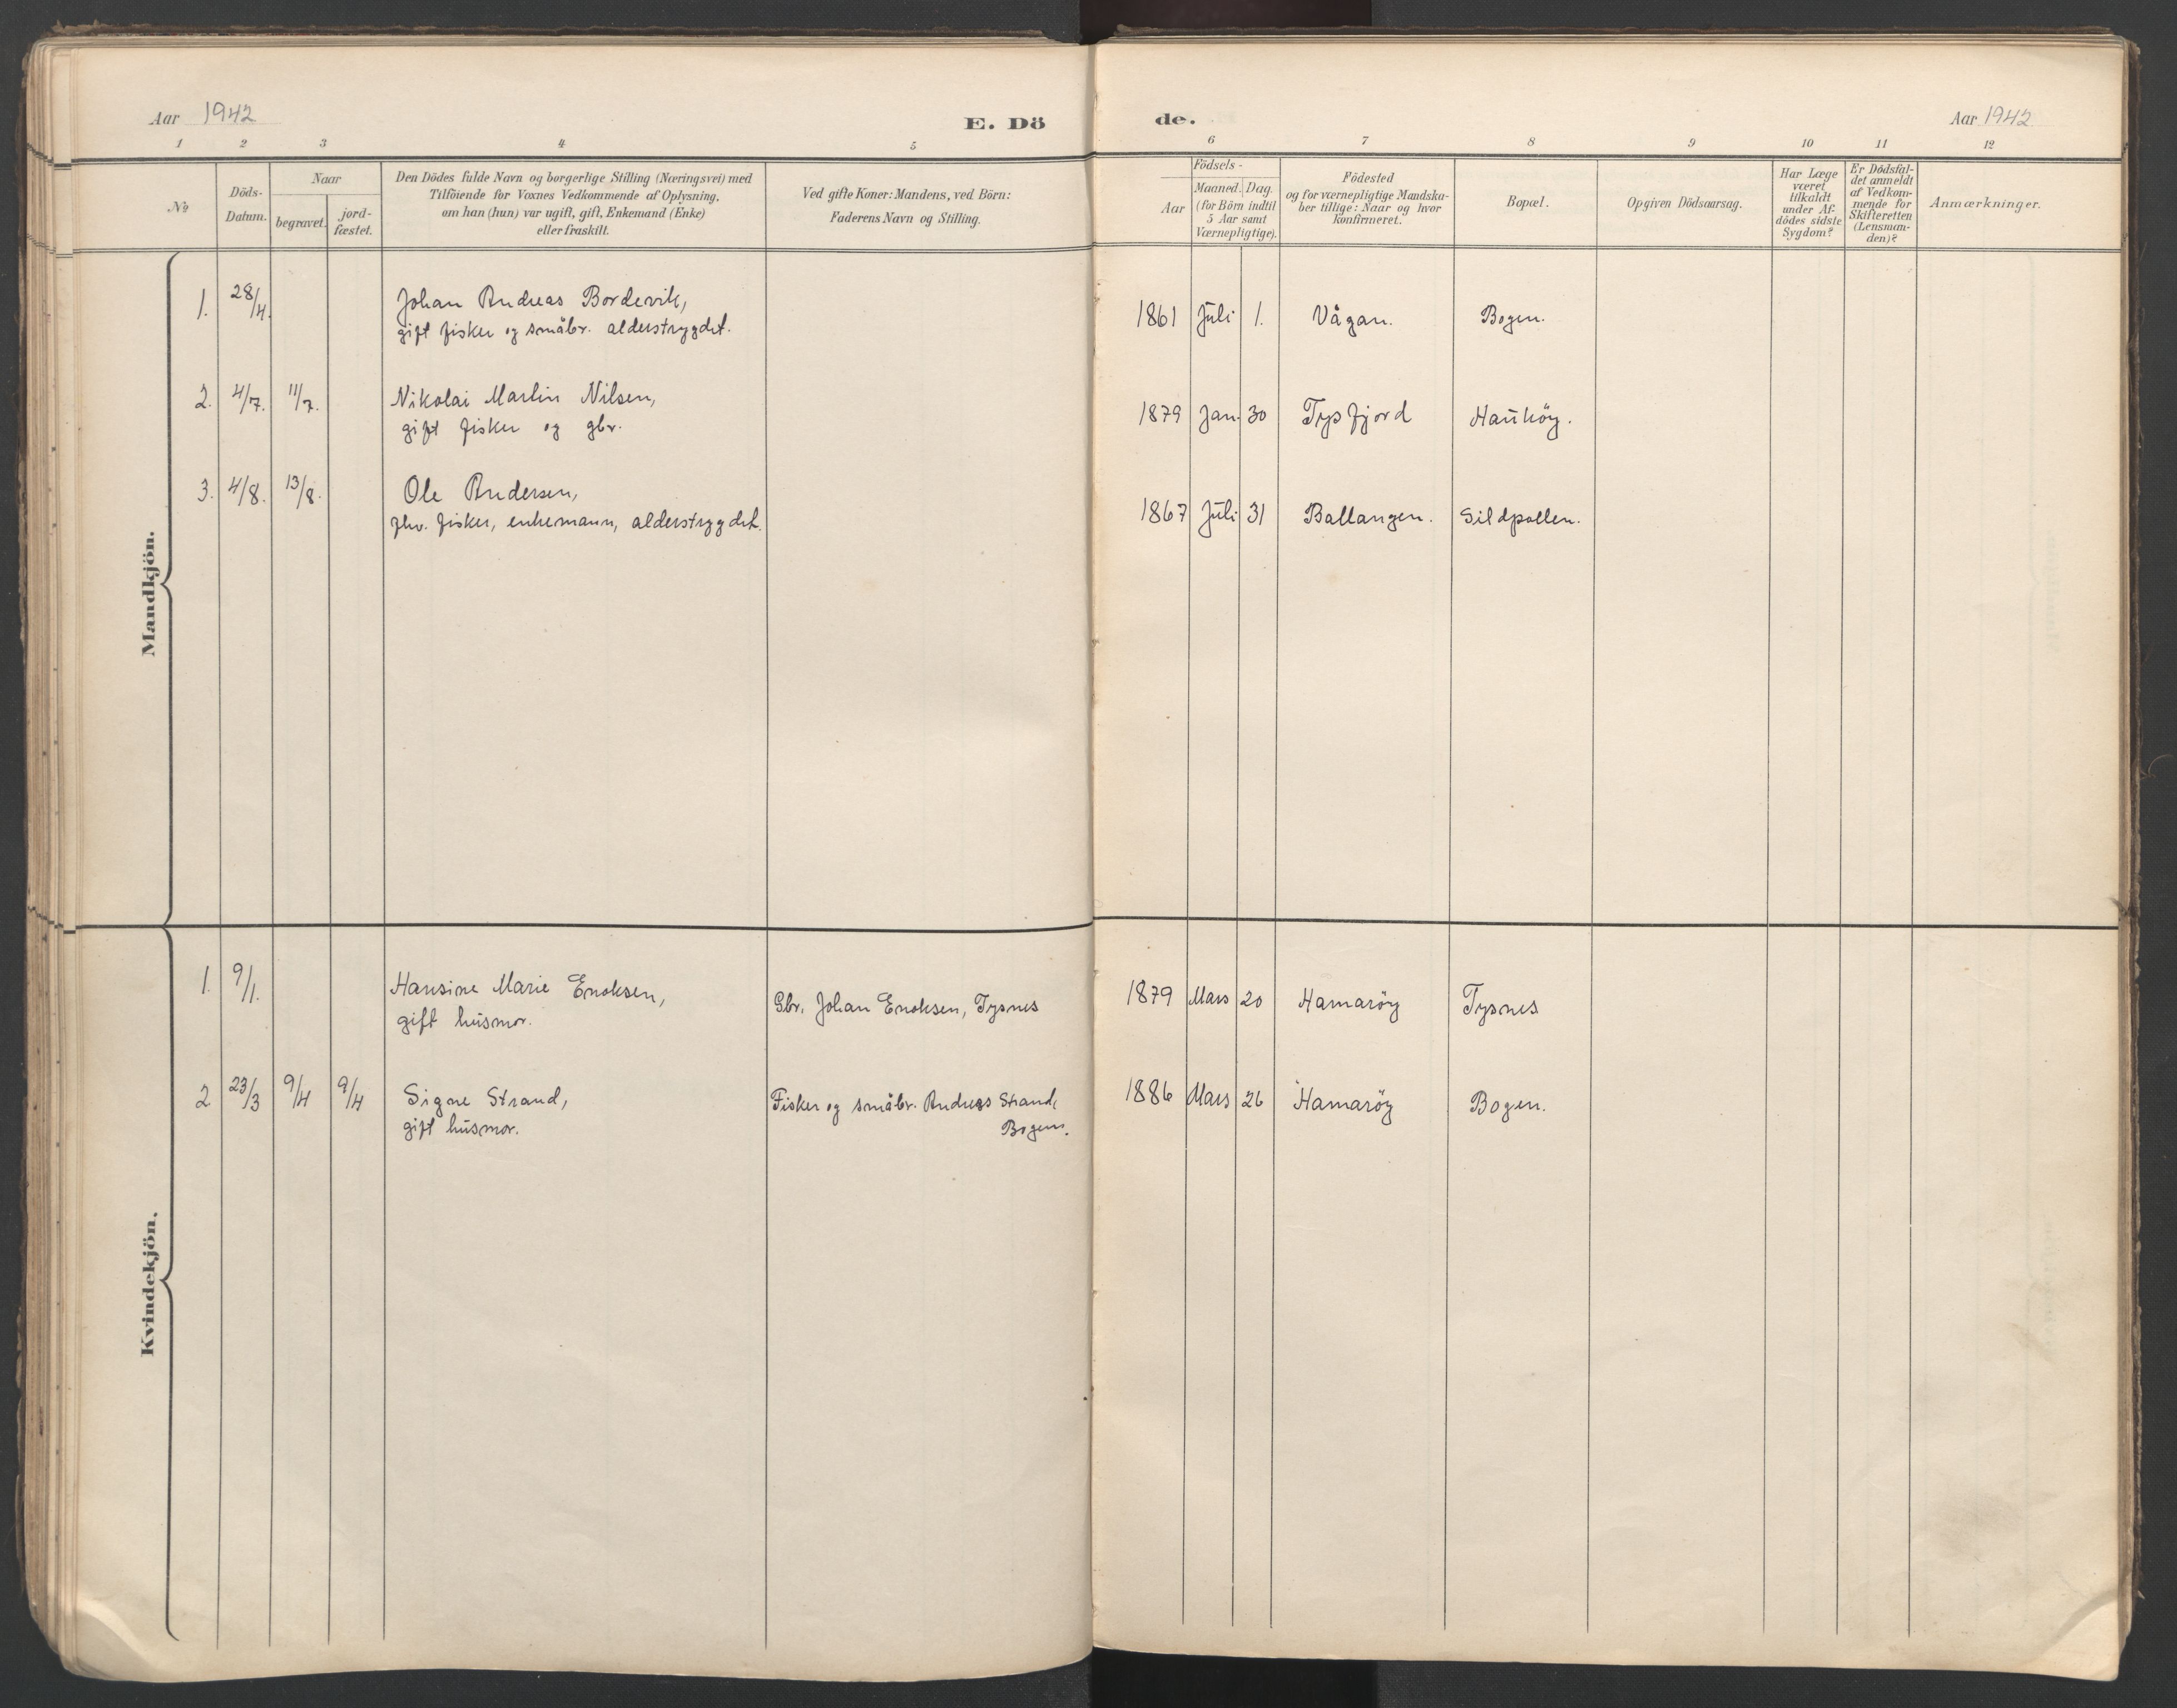 Aar 1942
E. Dö
de.
Aar 1942
1 2 3 4 5 6 7 8 9 10 11 12
№
Döds-
Datum.
Naar
begravet.
jord-
fæstet.
Den Dödes fulde Navn og borgerlige Stilling (Næringsvei) med
Tilföiende for Voxnes Vedkommende af Oplysning,
om han (hun) var ugift, gift, Enkemand (Enke)
eller fraskilt.
Ved gifte Koner: Mandens, ved Börn:
Faderens Navn og Stilling.
Födsels-
Aar
Maaned. Dag.
(for Börn indtil
5 Aar samt
Værnepligtige).
Födested
og for værnepligtige Mandska-
ber tillige: Naar og hvor
konfirmeret.
Bopæl.
Opgiven Dödsaarsag.
Har Læge
været
tilkaldt
under Af-
dödes sidste
Sygdom?
Er Dödsfal-
det anmeldt
af Vedkom-
mende for
Skifteretten
(Lensman-
den)?
Anmærkninger.
Mandkjön.
1. 28/4. Johan Andreas Bordevik, 1861 Juli 1. Vågan. Bogen.
gift fisker og småbr. alderstrygdet.
2. 4/7. 11/7. Nikolai Martin Nilsen, 1879 Jan. 30 Tysfjord Hauköy.
gift fisker og gbr.
3. 4/8. 13/8. Ole Andersen, 1867 Juli 31 Ballangen. Sildpollen.
fhv. fisker, enkemann, alderstrygdet.
Kvindekjön.
1. 9/1. Hansine Marie Enoksen, Gbr. Johan Enoksen, Tysnes 1879 Mars 20 Hamaröy Tysnes
gift husmor.
2 23/3 9/4 9/4 Signe Strand, Fisker og småbr. Andreas Strand, 1886 Mars 26 Hamaröy Bogen.
gift husmor. Bogen.